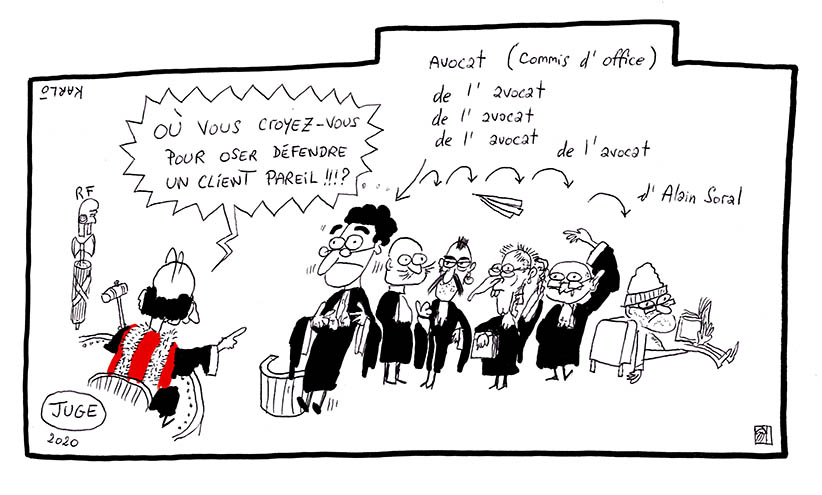 KARLŌ
Avocat (commis d'office)
de l'avocat
de l'avocat
de l'avocat
de l'avocat
d'Alain Soral
OÙ VOUS CROYEZ-VOUS
POUR OSER DÉFENDRE
UN CLIENT PAREIL !!!?
...
RF
JUGE
2020